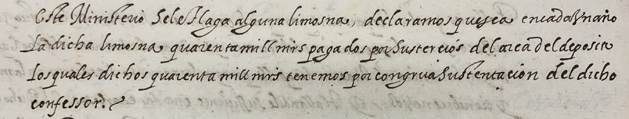 Este Ministerio Sele Haga alguna limosna, declaramos quesea encadaVnaño
La dicha limosna quarentamill mrs pagados porSustercios delarca del deposito
los quales dichos quarenta mill mrs tenemos por congrua Sustentacion del dicho
confessor.